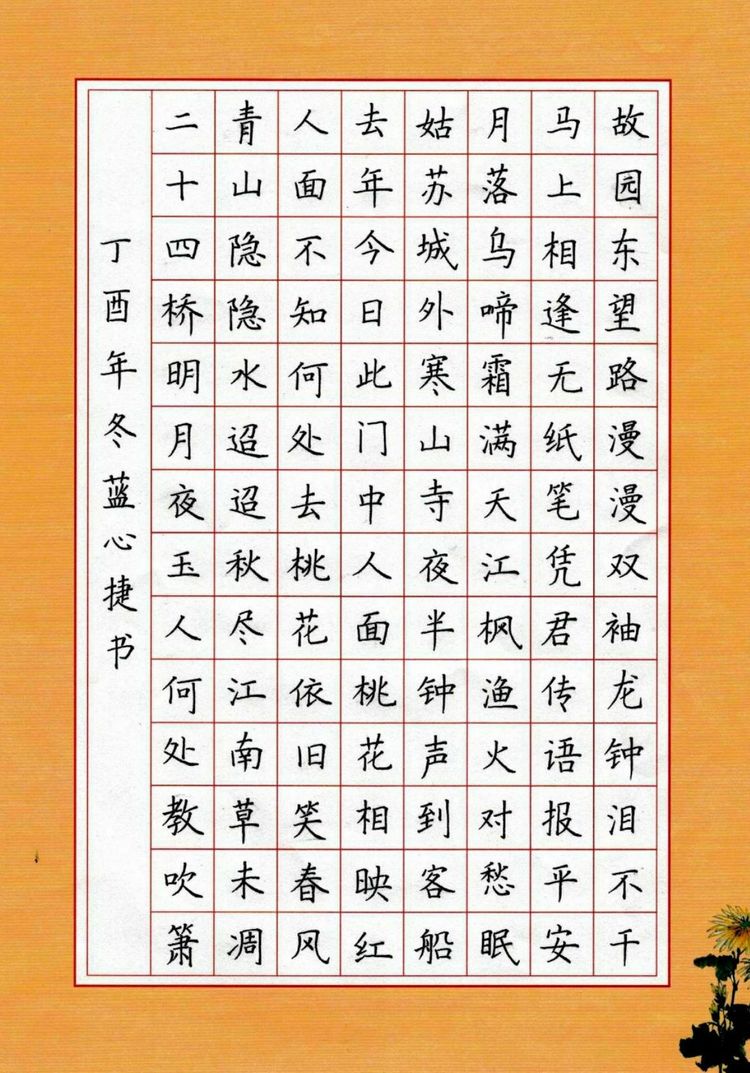 故园东望路漫漫双袖龙钟泪不干
马上相逢无纸笔凭君传语报平安
月落乌啼霜满天江枫渔火对愁眠
姑苏城外寒山寺夜半钟声到客船
去年今日此门中人面桃花相映红
人面不知何处去桃花依旧笑春风
青山隐隐水迢迢秋尽江南草未凋
二十四桥明月夜玉人何处教吹箫
丁酉年冬蓝心捷书